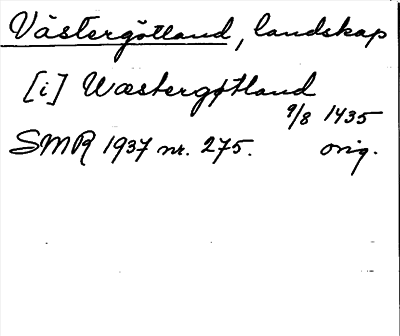 Västergötland, landskap
[i] Wæstergøtland
9/8 1435
SMR 1937 nr. 275. orig.